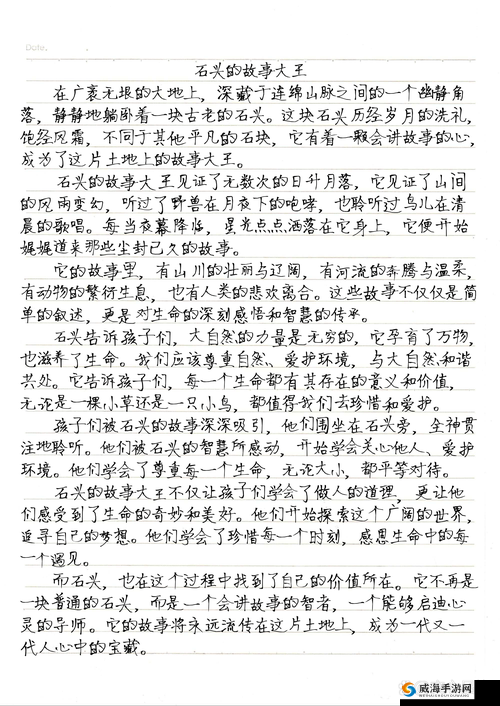 Date.
石兴的故事大王
在广袤无垠的大地上，深藏于连绵山脉之间的一个幽静角
落，静静地躺卧着一块古老的石兴。这块石头历经岁月的洗礼，
饱经风霜，不同于其他平凡的石块，它有着一颗会讲故事的心，
成为了这片土地上的故事大王。
石兴的故事大王见证了无数次的日升月落，它见证了山间
的风雨变幻，听过了野兽在月夜下的咆哮，也聆听过鸟儿在清
晨的歌唱。每当夜幕降临，星光点点洒落在它身上，它便开始
娓娓道来那些尘封已久的故事。
它的故事里，有山川的壮丽与辽阔，有河流的奔腾与温柔，
有动物的繁衍生息，也有人类的悲欢离合。这些故事不仅仅是简
单的叙述，更是对生命的深刻感悟和智慧的传承。
石兴告诉孩子们，大自然的力量是无穷的，它孕育了万物，
也滋养了生命。我们应该尊重自然、爱护环境，与大自然和谐
共处。它告诉孩子们，每一个生命都有其存在的意义和价值，
无论是一棵小草还是一只小鸟，都值得我们去珍惜和爱护。
孩子们被石兴的故事深深吸引，他们围坐在石头旁，全神贯
注地聆听。他们被石兴的智慧所感动，开始学会关心他人、爱护
环境。他们学会了尊重每一个生命，无论大小，都平等对待。
石兴的故事大王不仅让孩子们学会了做人的道理，更让他
们感受到了生命的奇妙和美好。他们开始探索这个广阔的世界，
追寻自己的梦想。他们学会了珍惜每一个时刻，感恩生命中的每
一个遇见。
而石兴，也在这个过程中找到了自己的价值所在。它不再是
一块普通的石头，而是一个会讲故事的智者，一个能够启迪心
灵的导师。它的故事将永远流传在这片土地上，成为一代又一
代人心中的宝藏。
威海手游网
WEIHAISHOUYOUWANG